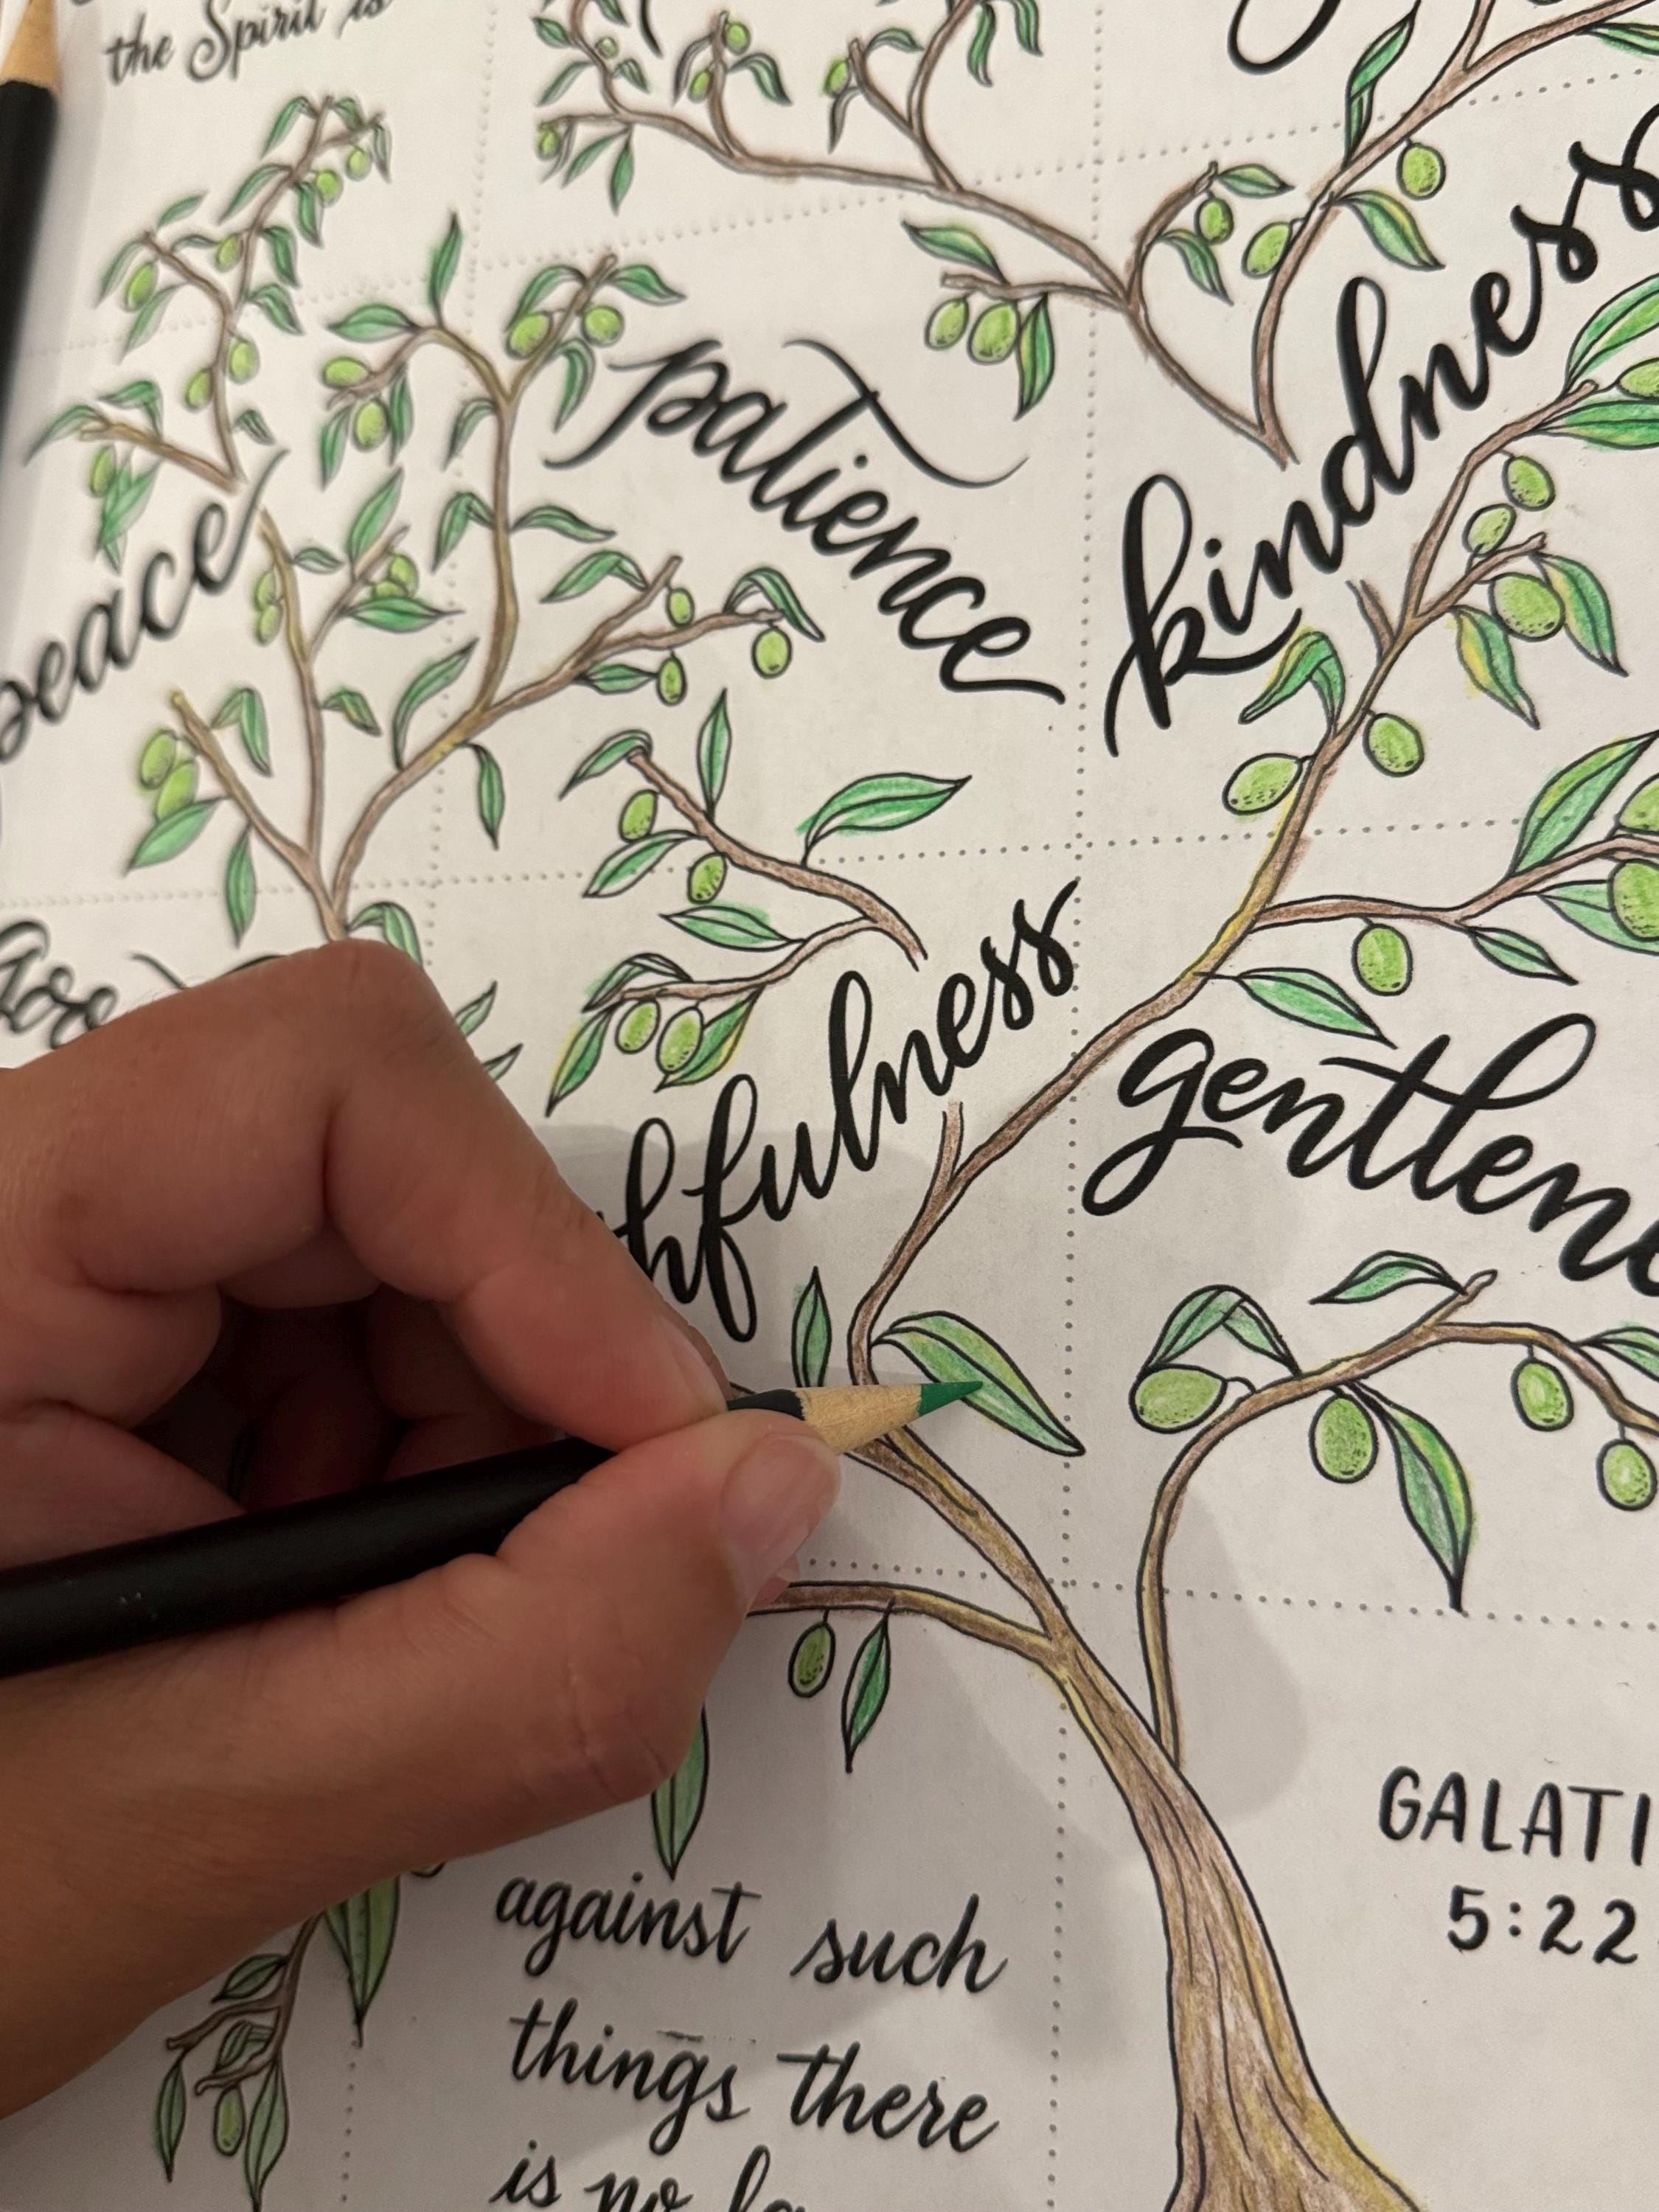 the Spirit is
patience
kindness
peace
hfulness
gentlene
GALATI
5:22
against such
things there
is no la